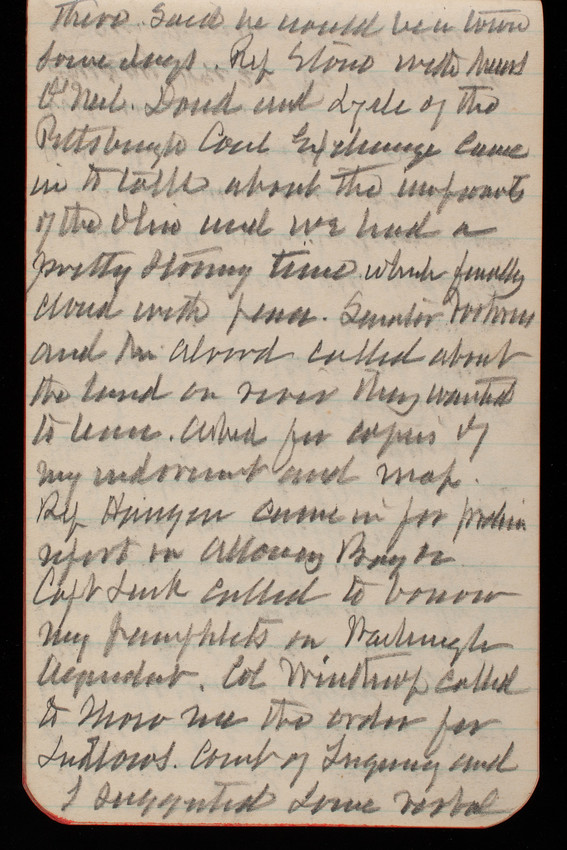 there. Said he would be in town
some days. Rep Stone with Messrs
O'Neil. Doud and Lysle of the
Pittsburgh Coal Exchange came
in to talk about the improvmts
of the Ohio and we had a
pretty stormy time which finally
closed with peace. Senator
and Mr. Alvord called about
the land on river they wanted
to lease. Asked for copies of
my indorsmt and map.
Rep Haugen came in for
report on Bay or
Capt Lusk called to borrow
my pamphlets on Washington
Aqueduct. Col Winthrop called
to show me the order for
Ludlows. Court of Inquiry and
I suggested some verbal